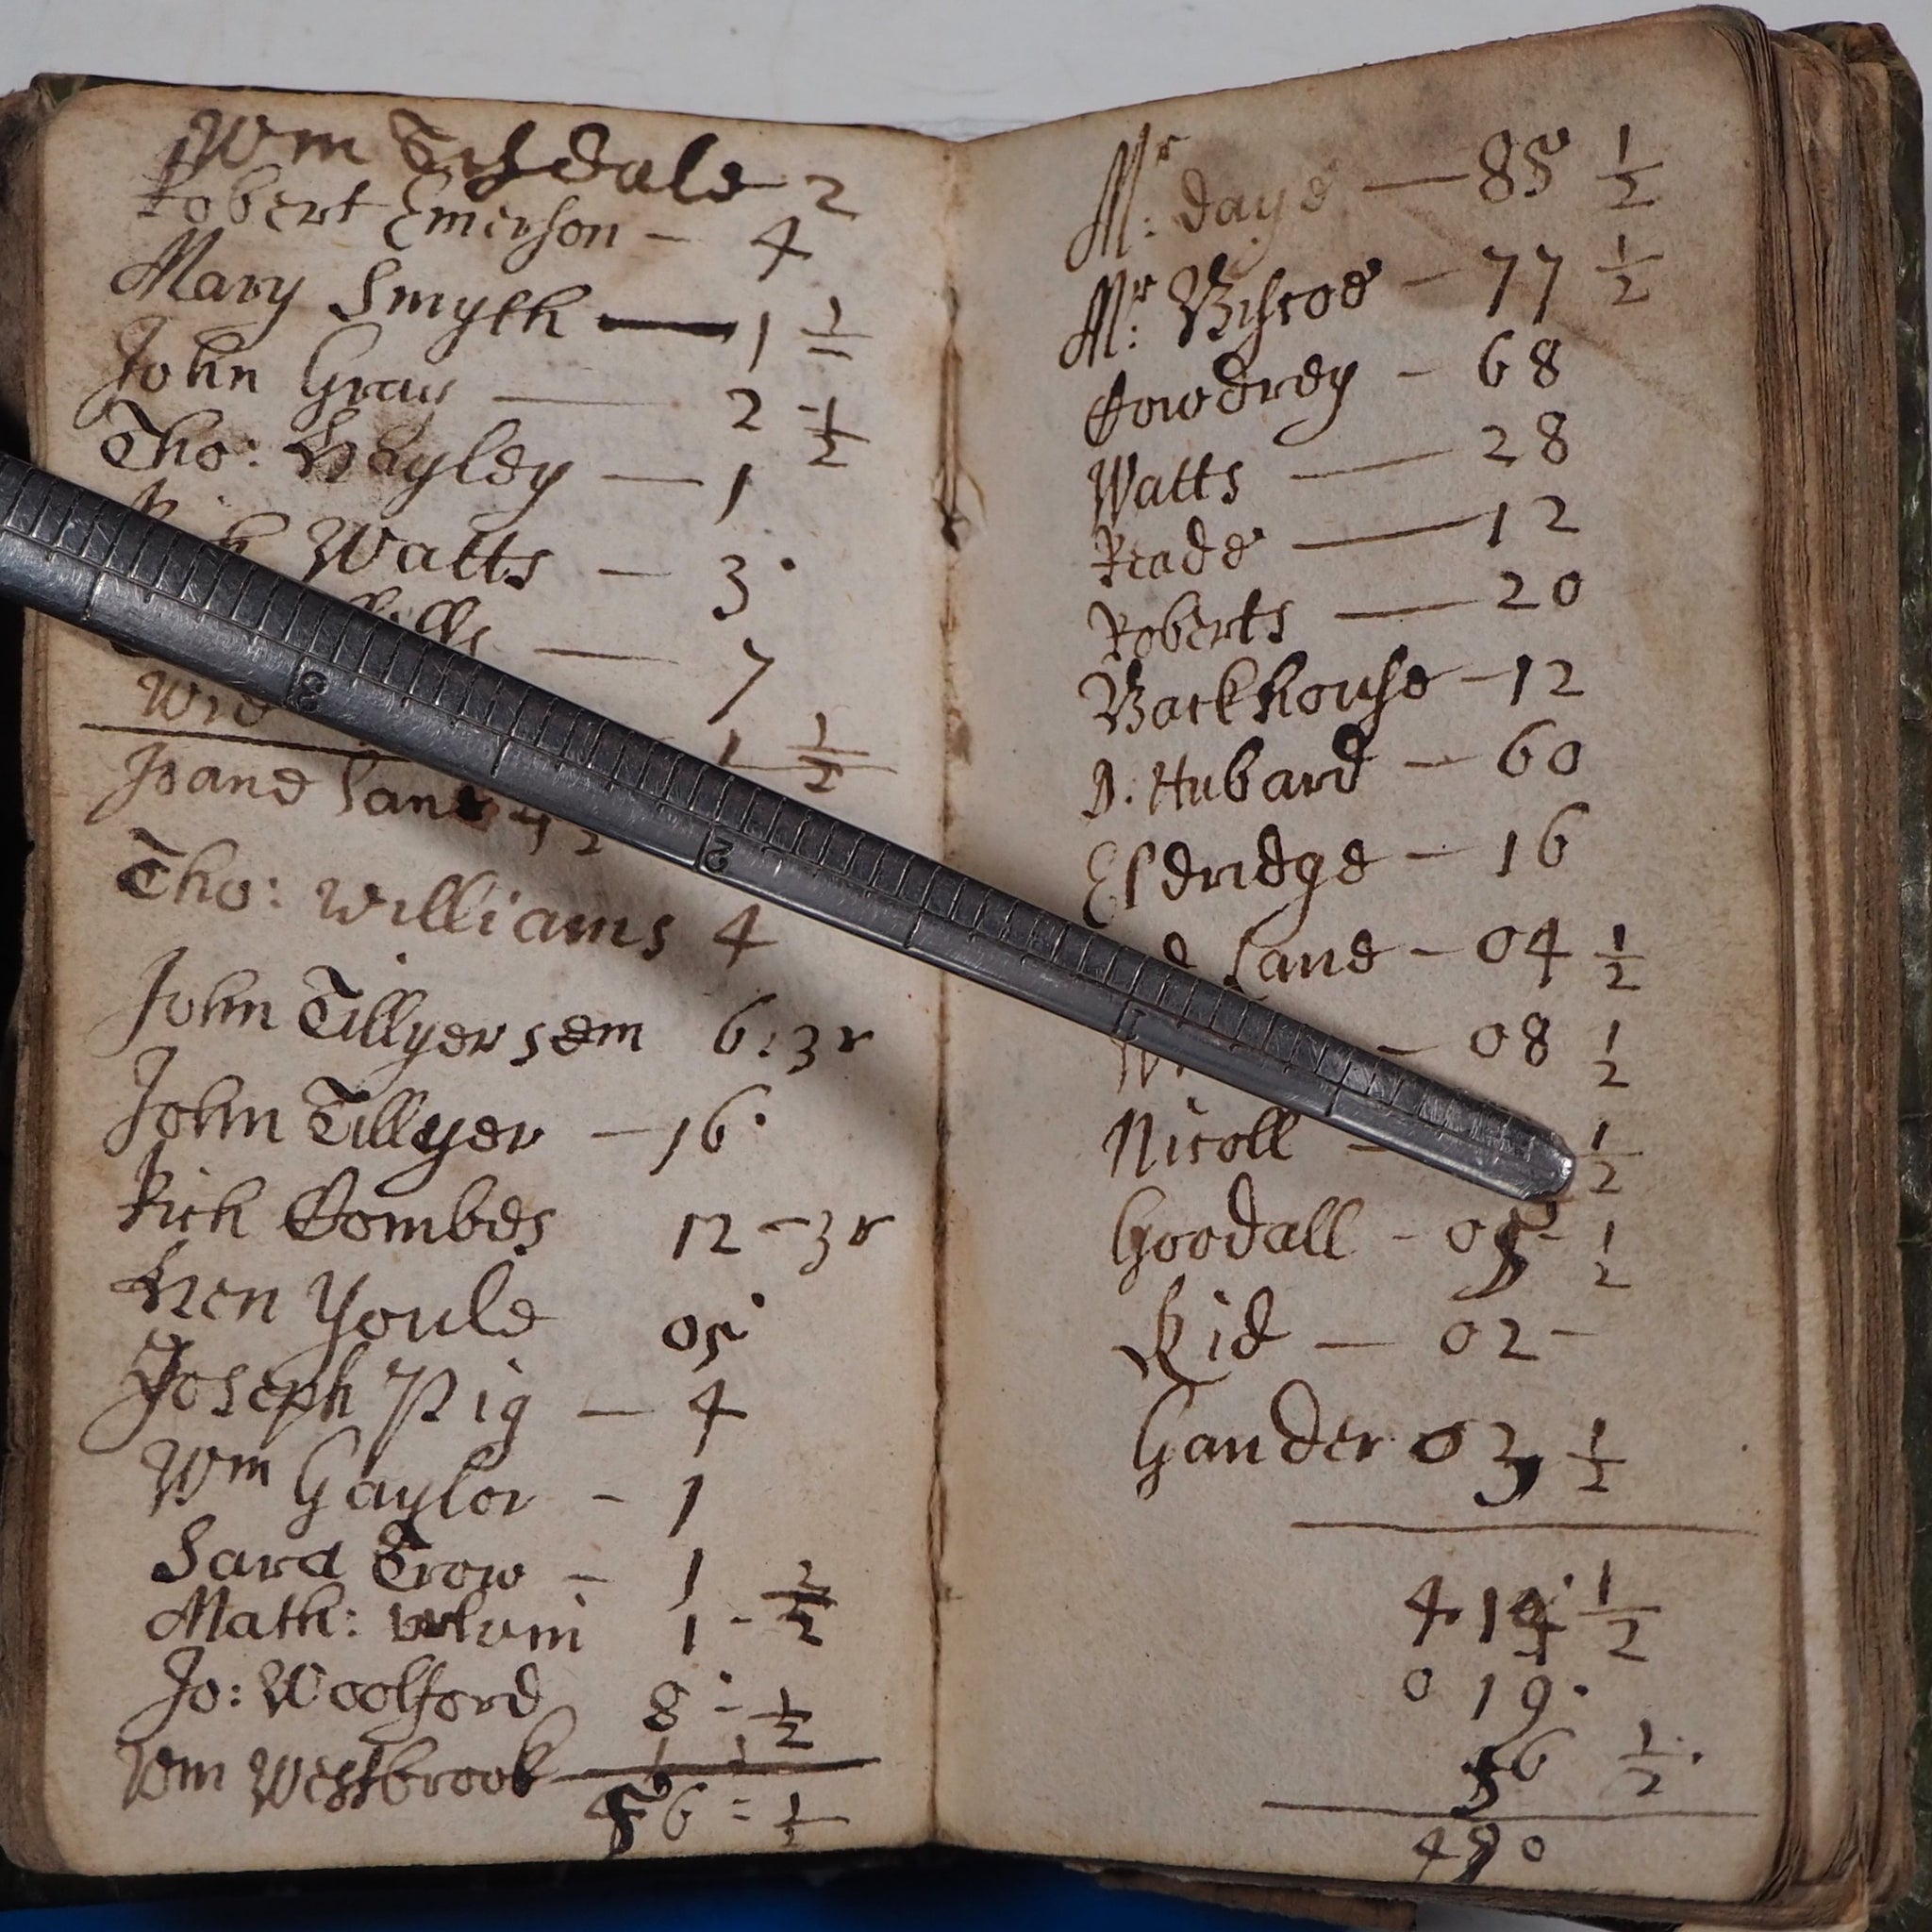 Wm Tisdale 2
Robert Emerson - 4
Mary Smyth — 1 1/2
John Gray — 2 1/2
Tho: Hayley — 1
Watts — 3
7
1 1/2
Joane Lane 4 1/2
Tho: Williams 4
John Tillyer sem 6:3r
John Tillyer — 16
Rich Combes 12 - 3r
Hen Youle 05
Joseph Pig — 4
Wm Gaylor - 1
Sara Crow - 1 1/2
Math: 1 - 1/2
Jo: Woolford 8 - 1/2
Wm Westbrook
56 = 1/2
Mr: Daye — 85 1/2
Mr: Biscoe - 77 1/2
Cowdrey - 68
Watts — 28
Reade — 12
Roberts — 20
Backhouse - 12
D. Hubard - 60
Eldridge - 16
Lane - 04 1/2
- 08 1/2
Nicoll - 1/2
Goodall - 05 1/2
Kid — 02 -
Gander 03 1/2
414 1/2
019
56 1/2
490
3
2
1